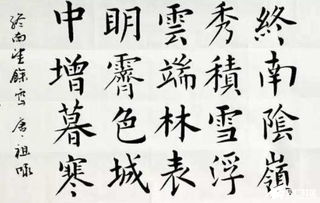 終南陰嶺
秀積雪浮
雲端林表
明霽色城
中增暮寒
終南望餘雪 唐·祖咏